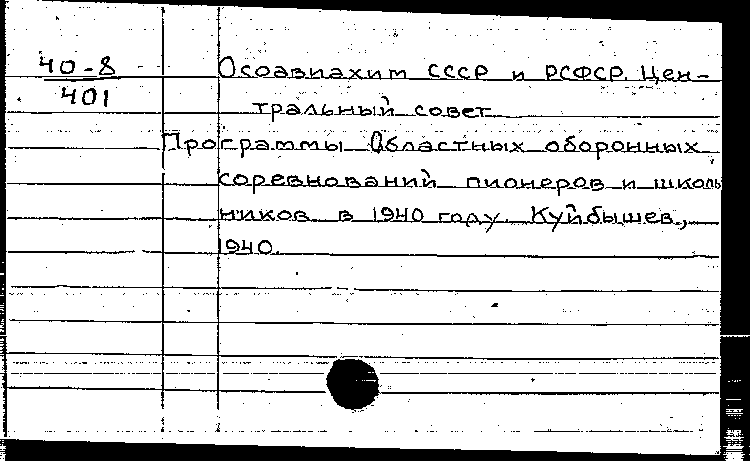 40-8
401
Осоавиахим СССР и РСФСР. Цен-
тральный совет
Программы Областных оборонных
соревнований пионеров и школь
ников в 1940 году. Куйбышев,
1940.